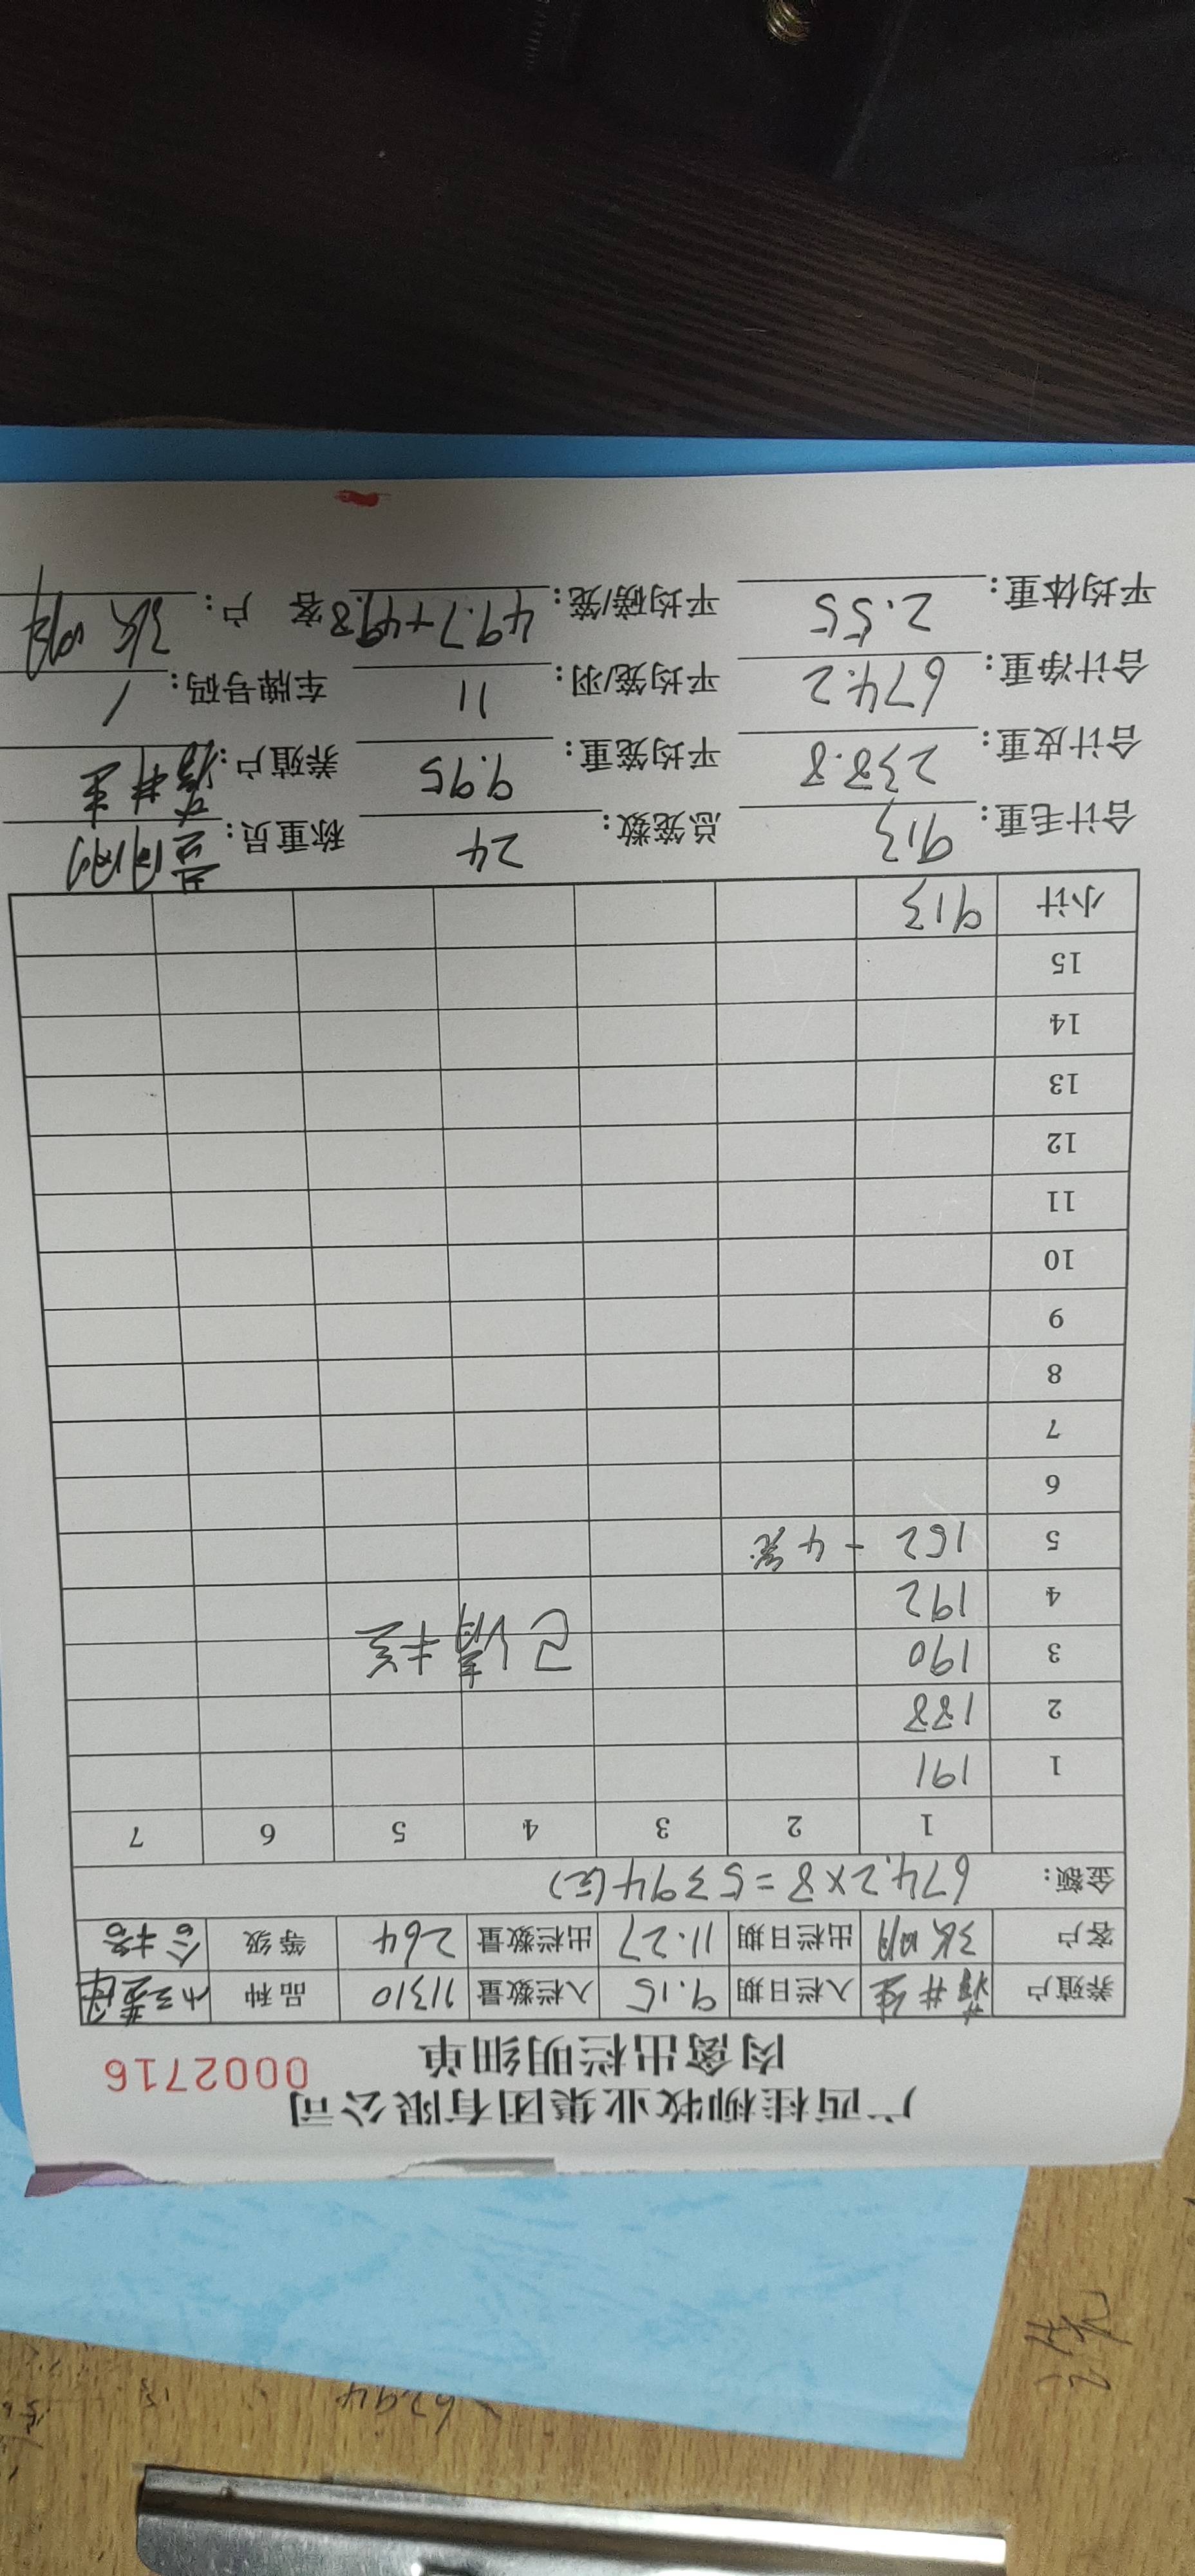 广西桂柳牧业集团有限公司
肉禽出栏明细单 0002716
养殖户 入栏日期 9.15 入栏数量 11310 品种
客户 张明 出栏日期 11.27 出栏数量 264 等级 合格
金额: 674.2×8=5394(元)
1 2 3 4 5 6 7
1 191
2 188
3 190 已清楼
4 192
5 152 - 4笼
6
7
8
9
10
11
12
13
14
15
小计 913
合计毛重: 913 总笼数: 24 称重员:
合计皮重: 238.8 平均笼重: 9.95 养殖户:
合计净重: 674.2 平均笼/羽: 11 车牌号码: /
平均体重: 2.55 平均磅/笼: 49.7+49.8 客户: 张明